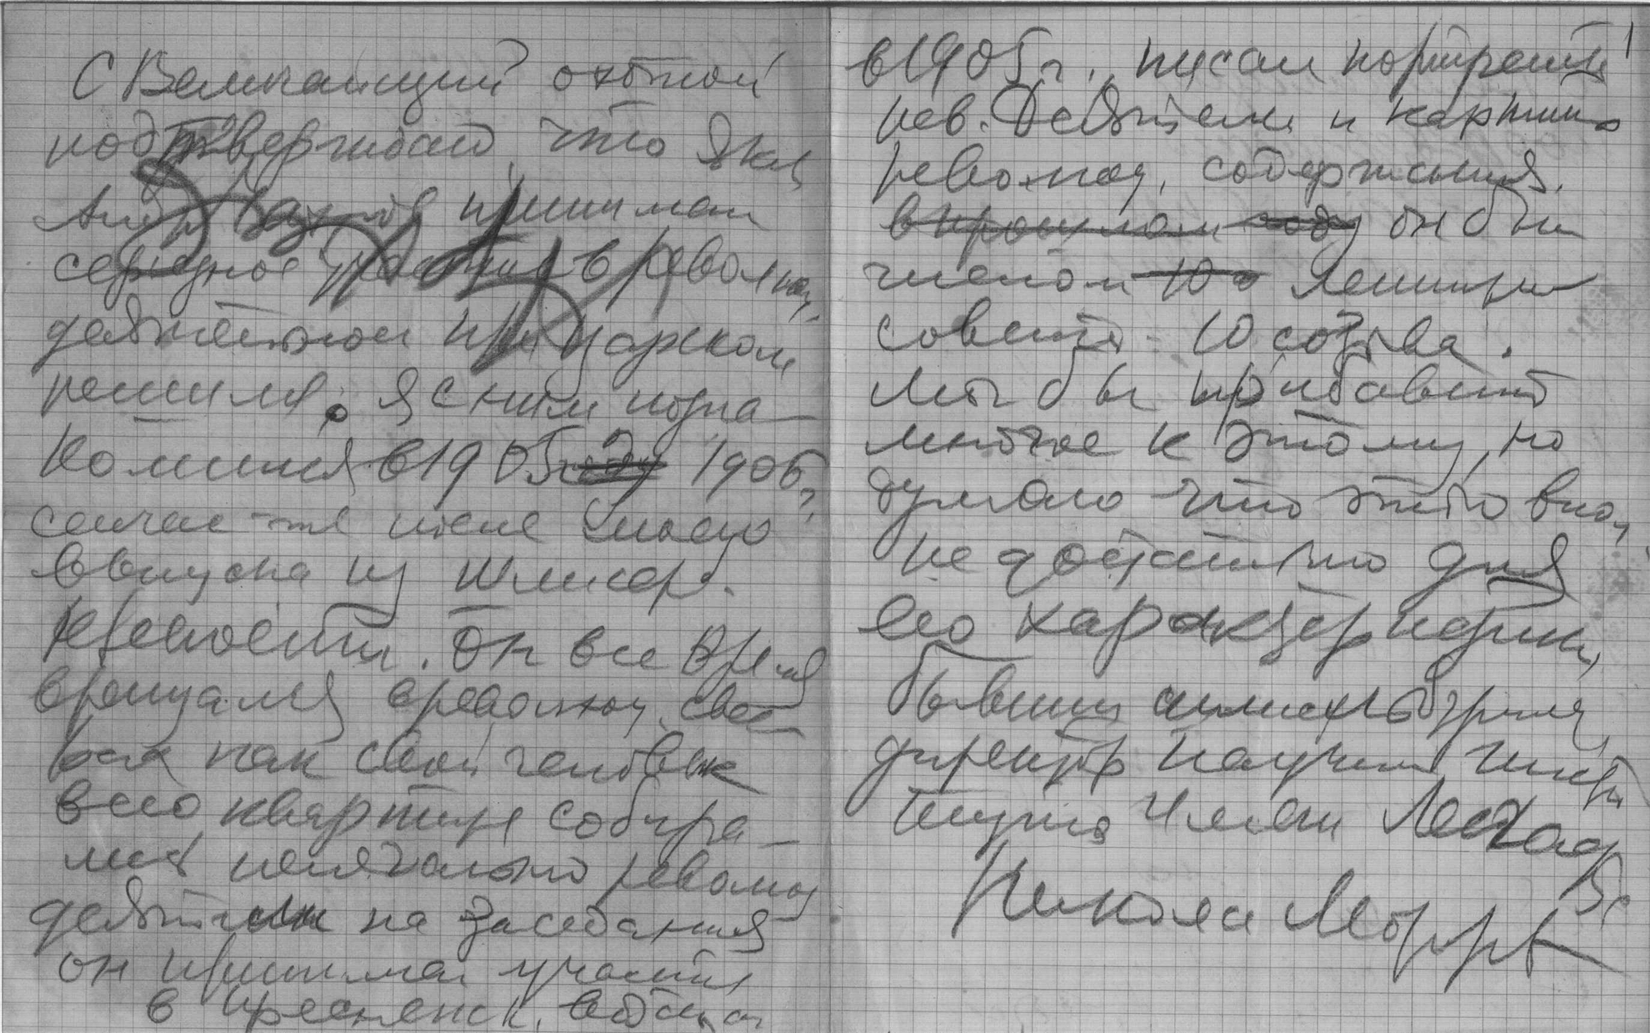 С Величайший охотой
подтверждаю что Як
Андр принимал
серьезное участие в революц.
деятельности при царском
режиме. Я с ним позна-
комился в 1905 году 1906,
сейчас-же после моего
выпуска из Шлисс.
крепости. Он все время
вращался в революц.
как свой человек
в его квартире собира-
лись нелегально революц
деятели на заседания
он принимал участие
в Пресненск.
в 1905 г., писал портреты
рев. Деятелей и картины
революц, содержания.
в прошлом году он был
членом 10 Ленингр
совета - 10 созыва.
Мог бы прибавить
многое к этому, но
думаю что этого впол,
не достаточно для
его характеристики,
бывший шлиссельбуржец,
директор Научного Инсти
тута имени Лесгаф
Николай Морозов